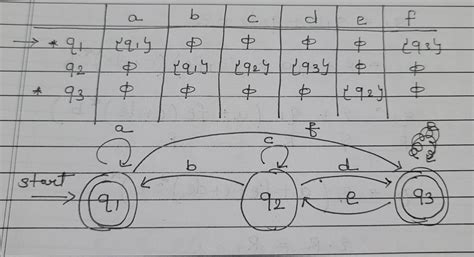 a b c d e f
→ * q1 {q1} Φ Φ Φ Φ {q3}
q2 Φ {q1} {q2} {q3} Φ Φ
* q3 Φ Φ Φ Φ {q2} Φ
a f
c
start b d
q1 q2 e q3